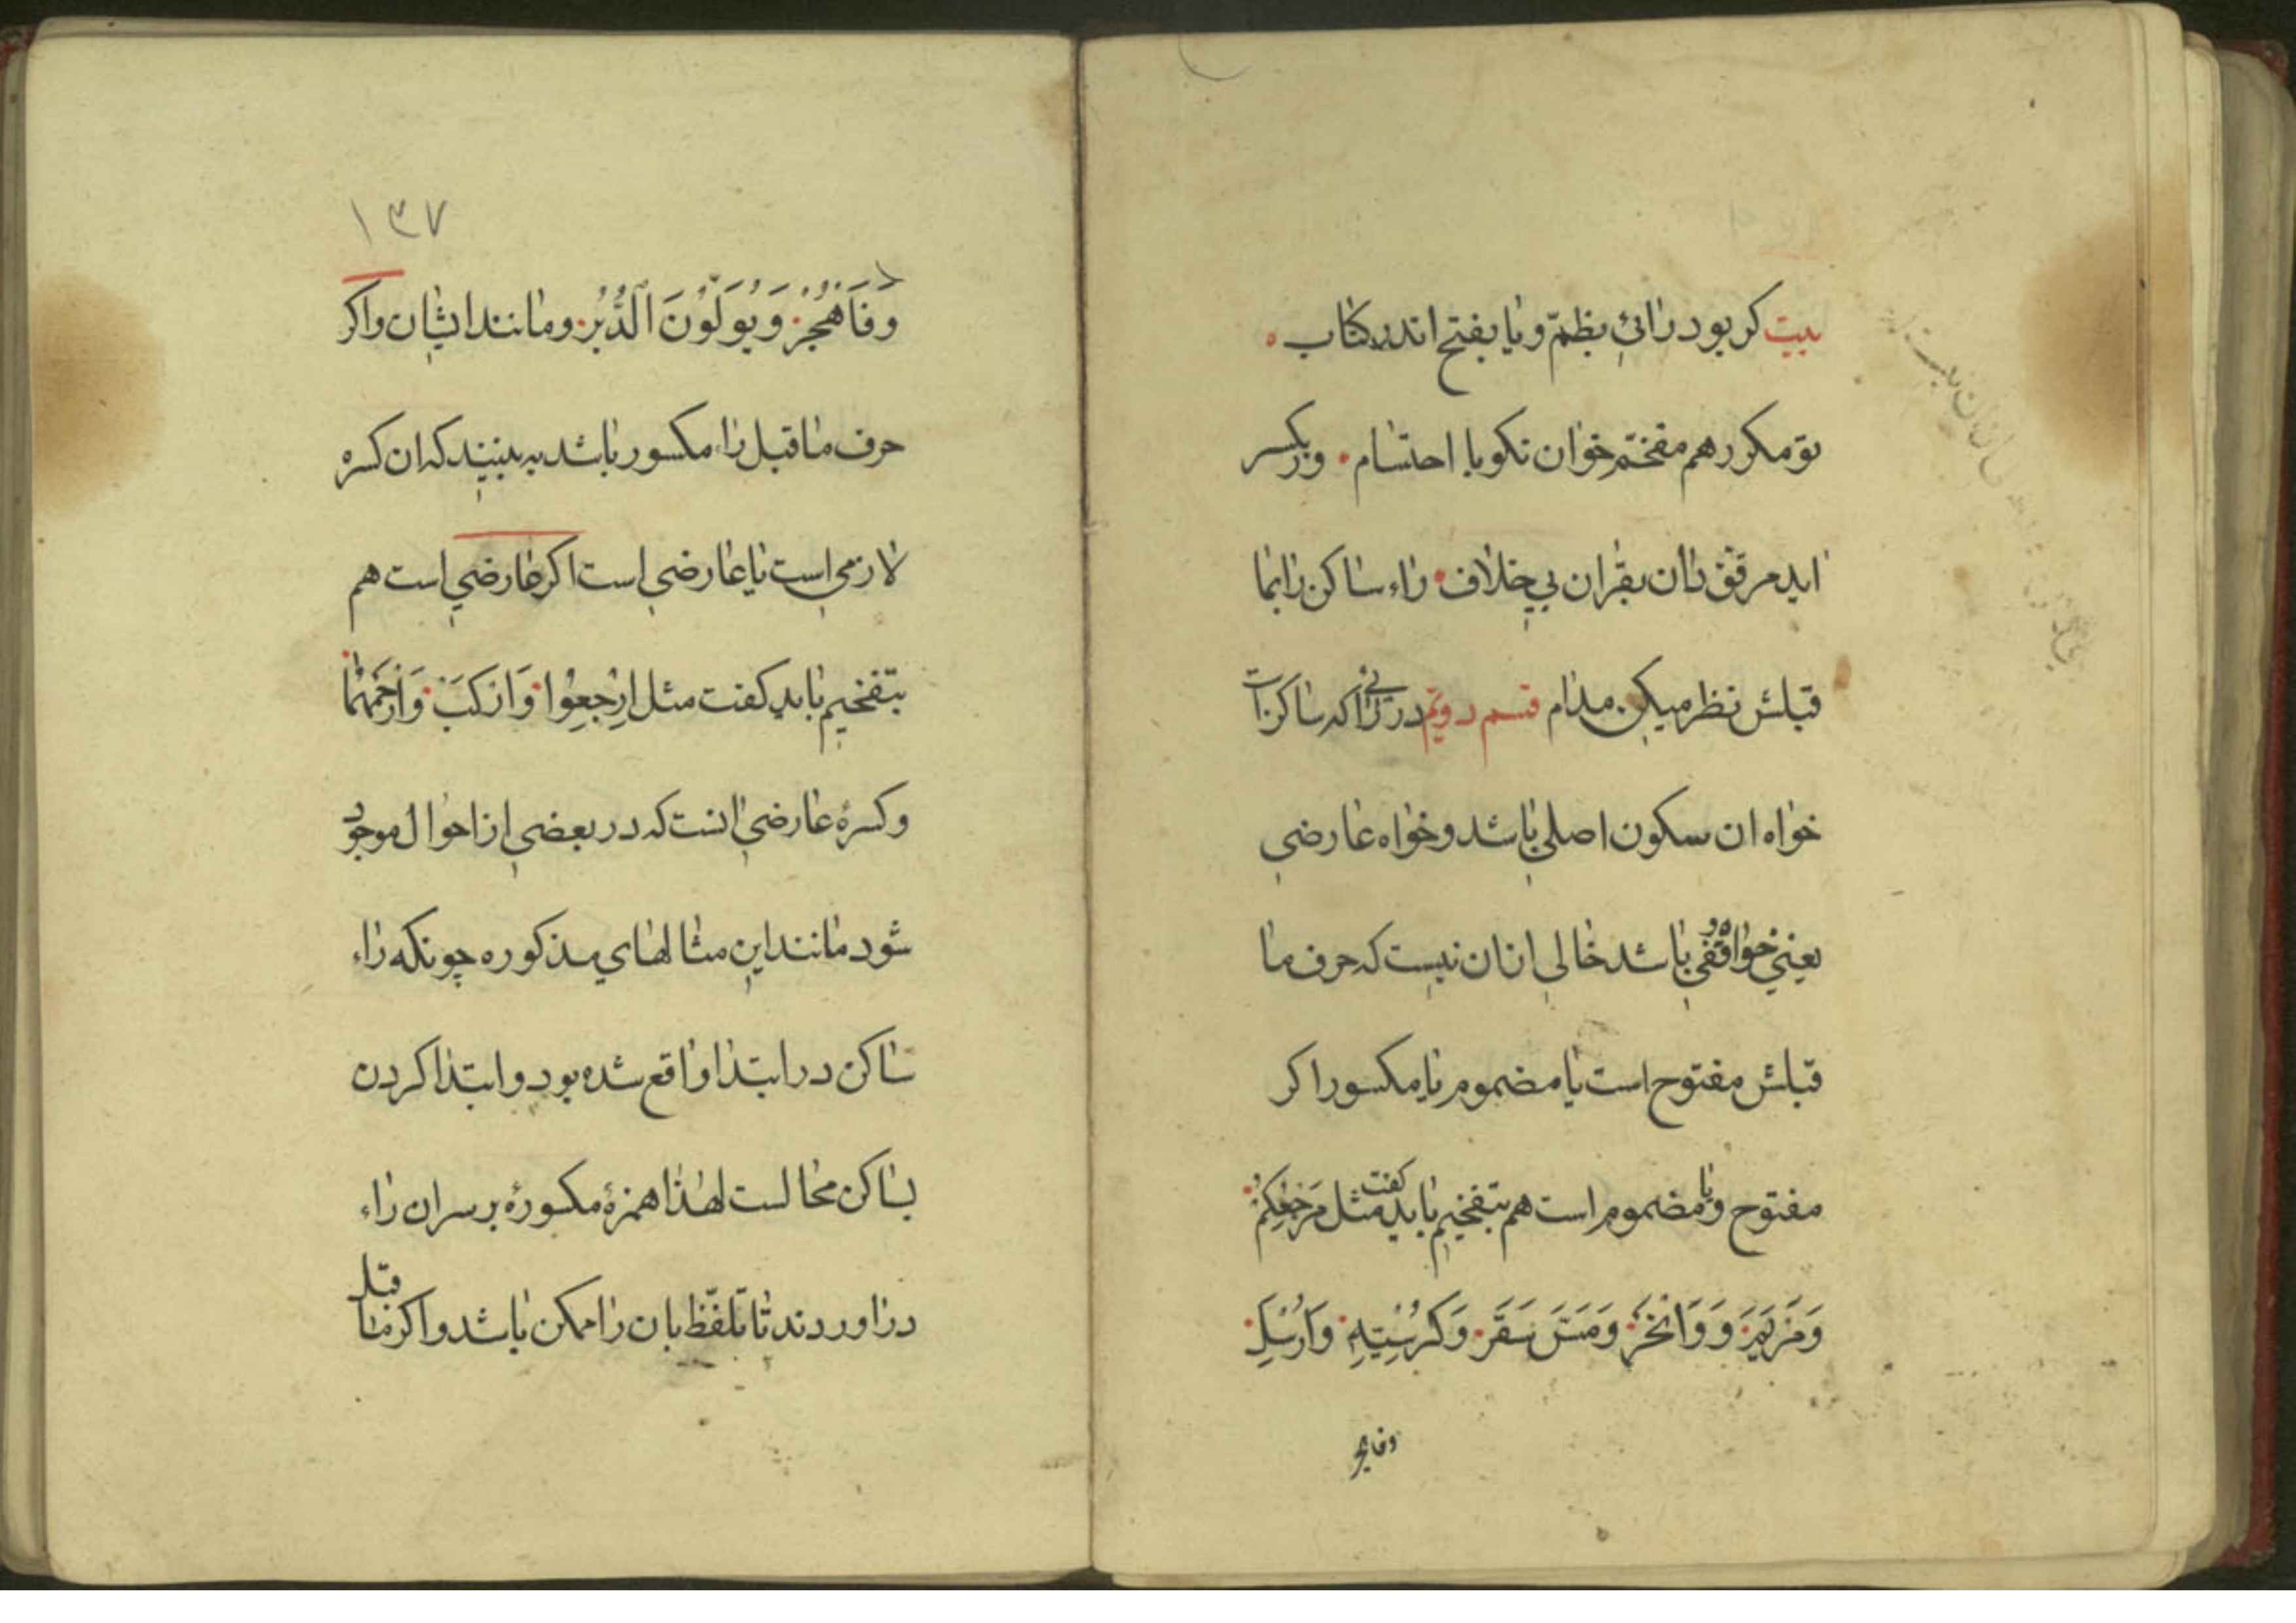 بیت کر بود رائی بظمّ و یا بفتح اندر کتاب
تو مکرر هم مفخّم خوان نکو با احتشام وربکسر
اید مرقق دان بقران بی خلاف راء ساکن را بما
قبلش نظر میکن مدام قسم دویّم در رائی که ساکن است
خواه ان سکون اصلی باشد و خواه عارضی
یعنی خواه وقفی باشد خالی ازان نیست که حرف ما
قبلش مفتوح است یا مضموم یا مکسور اکر
مفتوح ویا مضموم است هم بتفخیم باید کفت مثل مَرْجِعُکُمْ
وَمَرْیَمَ وَ وَانْحَرْ وَمَسَّ سَقَرْ وَکُرْسِیِّهِ وَاُرْسِلَ
وفاهجر
۱۳۷
وَفَاهْجُرْ وَیُوَلُّوْنَ الدُّبُرْ ومانند ایشان واکر
حرف ما قبل راء مکسور باشد به بینید که ان کسره
لازمی است یا عارضی است اکر عارضی است هم
بتفخیم باید کفت مثل اِرْجِعُوْا وَارْکَبْ وَارْحَمْهُمَا
وکسرهٔ عارضی انست که در بعضی از احوال موجود
شود مانند این مثالهای مذکوره چونکه راء
ساکن در ابتدا واقع شده بود و ابتدا کردن
بساکن محالست لهذا همزهٔ مکسوره بر سر ان راء
در اوردند تا تلفّظ بان را ممکن باشد واکر ما قبل